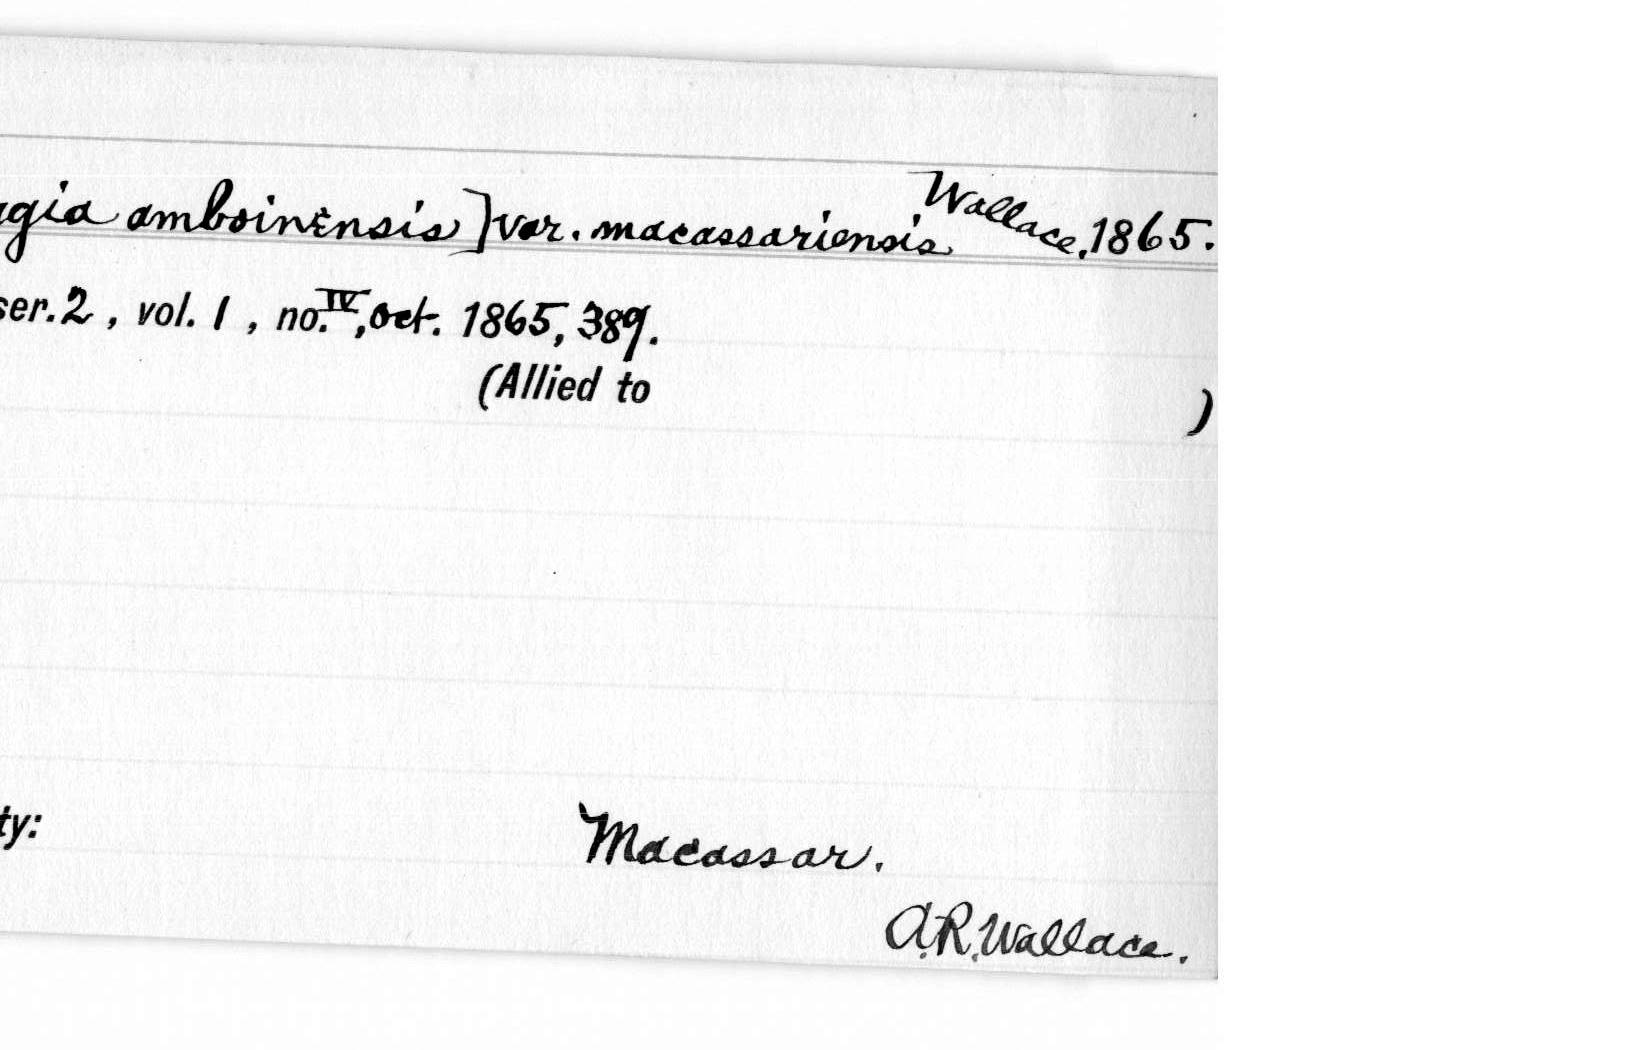 gia amboinensis] var. macassariensis Wallace, 1865.
ser. 2, vol. 1, no. IV, Oct. 1865, 389.
(Allied to )
ty:
Macassar.
A.R. Wallace.